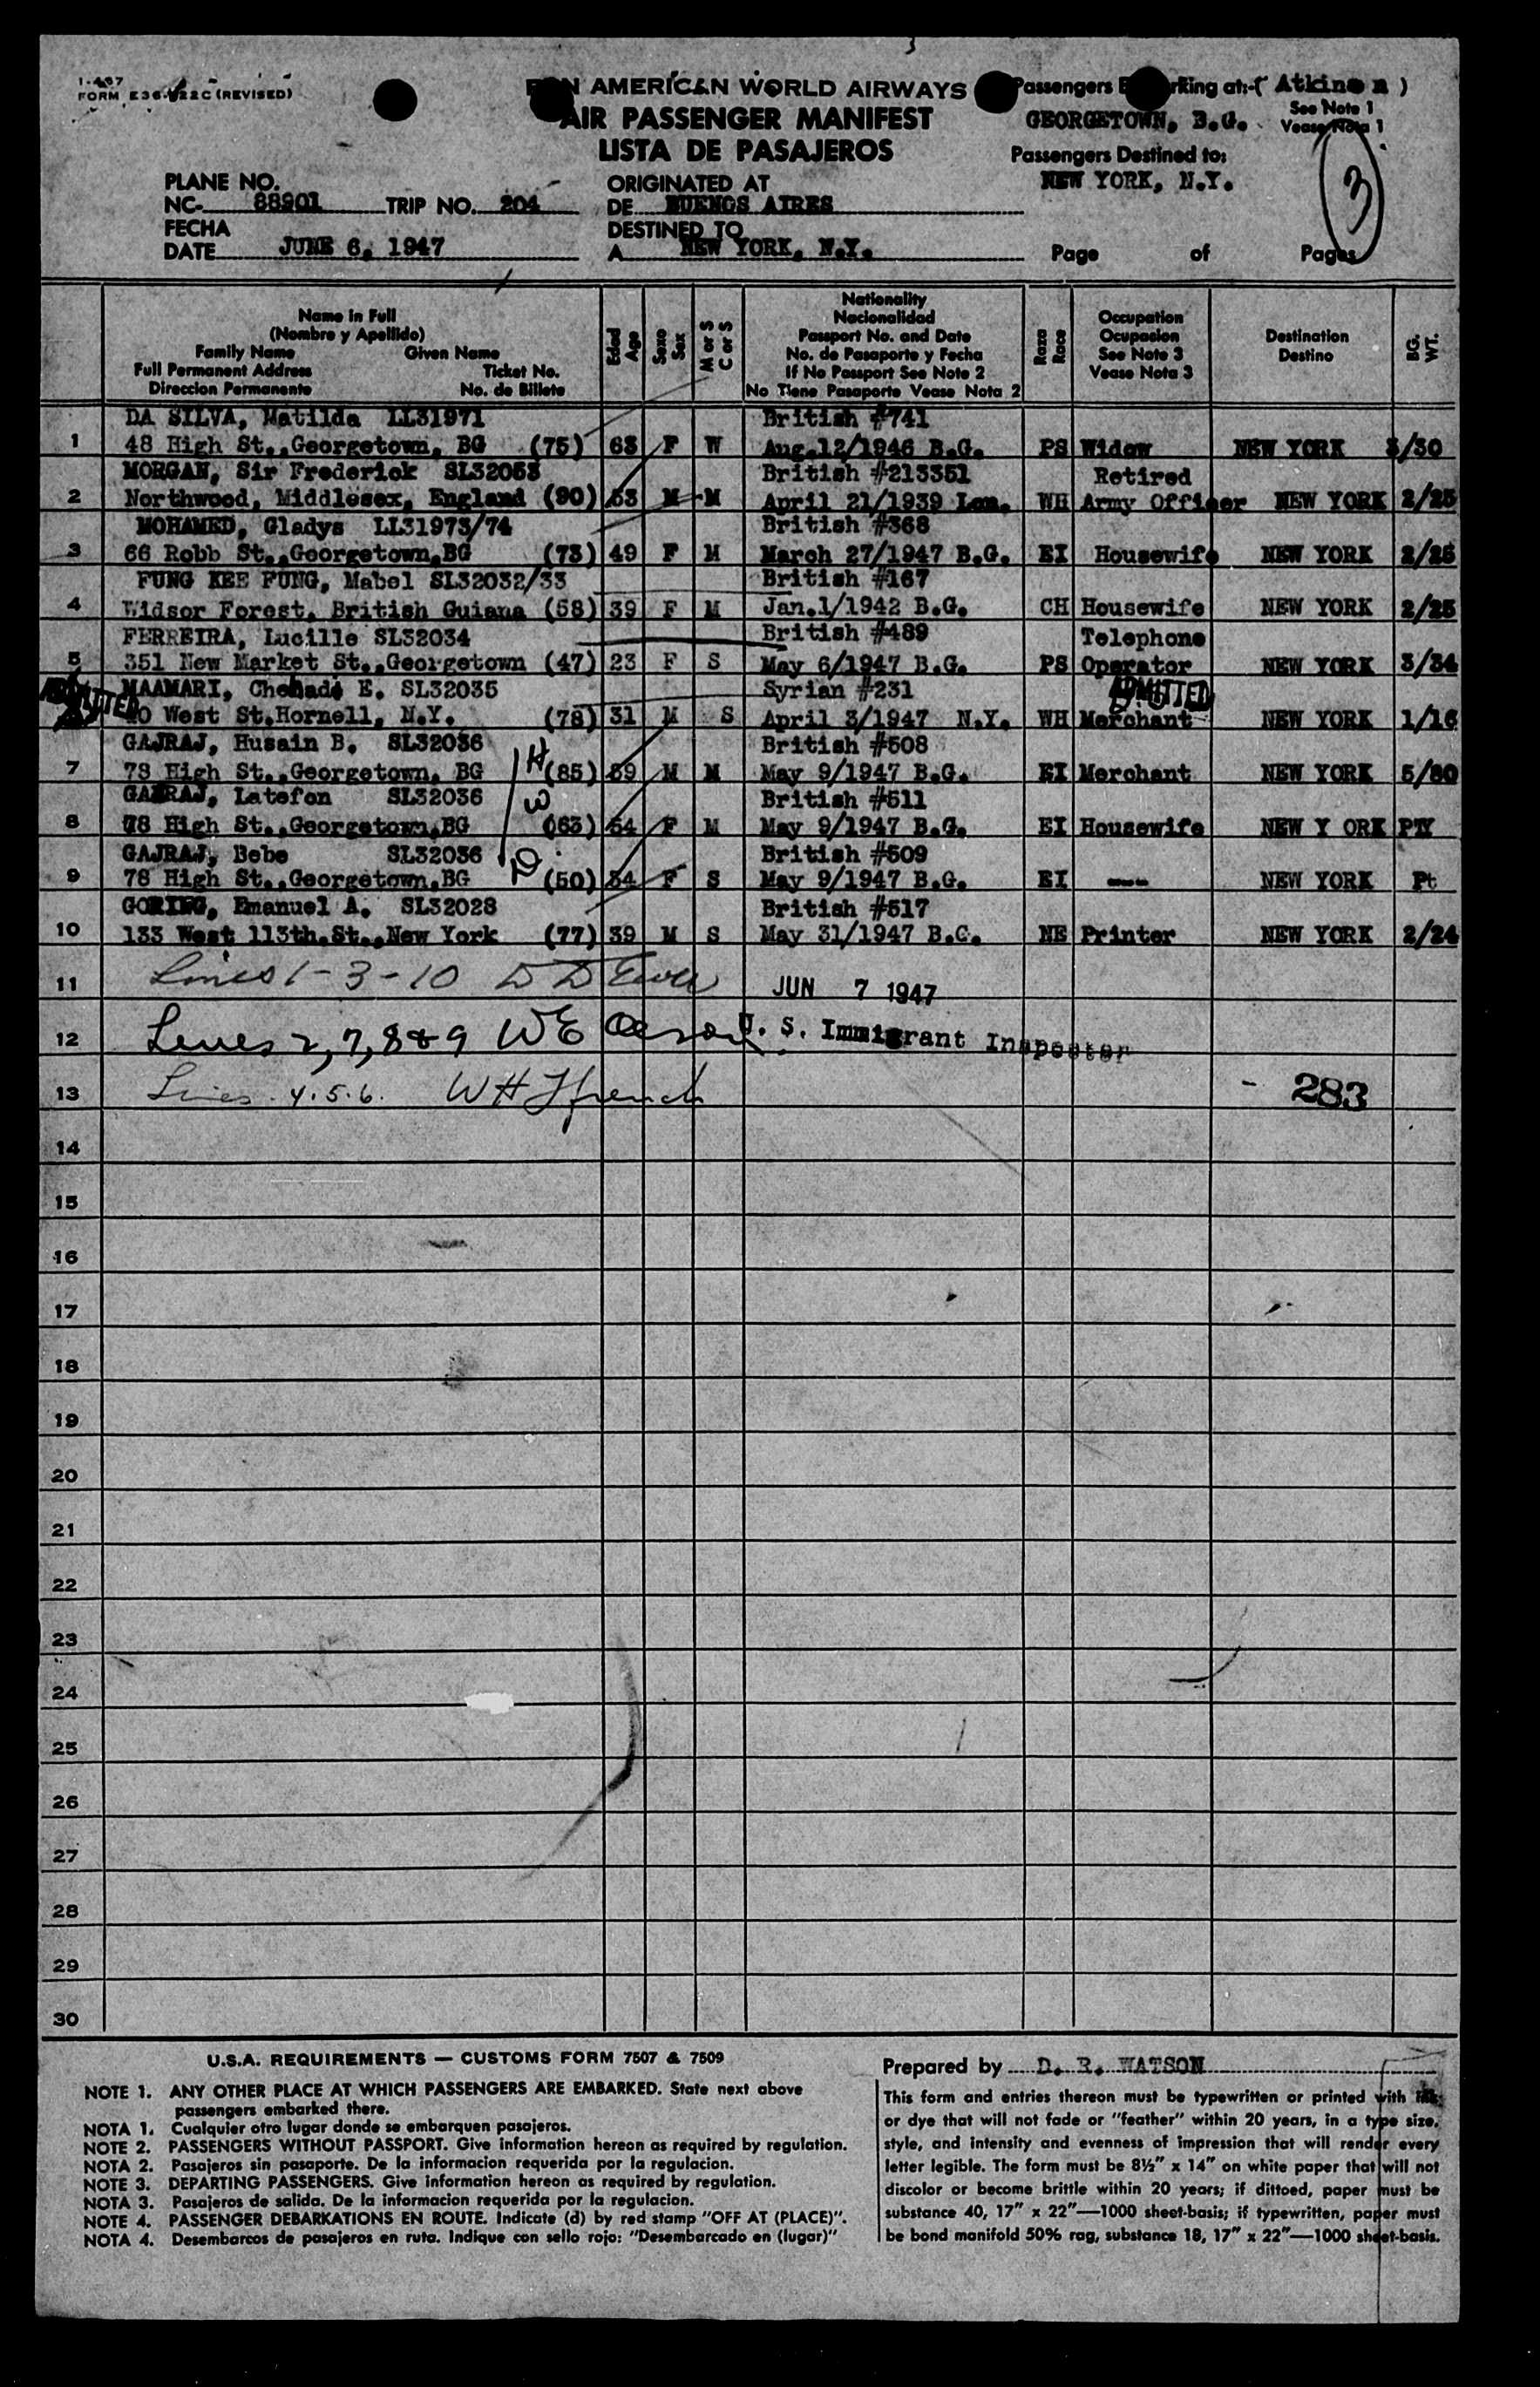 I-467
FORM E36-022C (REVISED)
PAN AMERICAN WORLD AIRWAYS
AIR PASSENGER MANIFEST
LISTA DE PASAJEROS
Passengers Embarking at:-( Atkinson )
GEORGETOWN, B.G.
See Note 1
Vease Nota 1
Passengers Destined to:
NEW YORK, N.Y.
3
PLANE NO.
NC- 88901 TRIP NO. 204
FECHA
DATE JUNE 6, 1947
ORIGINATED AT
DE BUENOS AIRES
DESTINED TO
A NEW YORK, N.Y.
Page of Pages
Name in Full
(Nombre y Apellido)
Family Name Given Name
Full Permanent Address Ticket No.
Direccion Permanente No. de Billete
Edad
Age
Sexo
Sex
M or S
C or S
Nationality
Nacionalidad
Passport No. and Date
No. de Pasaporte y Fecha
If No Passport See Note 2
No Tiene Pasaporte Vease Nota 2
Raza
Race
Occupation
Ocupacion
See Note 3
Vease Nota 3
Destination
Destino
BG.
WT.
DA SILVA, Matilda LL31971 British #741
1 48 High St.,Georgetown, BG (75) 63 F W Aug.12/1946 B.G. PS Widow NEW YORK 3/30
MORGAN, Sir Frederick SL32053 British #213351 Retired
2 Northwood, Middlesex, England (90) 53 M M April 21/1939 Lon. WH Army Officer NEW YORK 2/25
MOHAMED, Gladys LL31973/74 British #368
3 66 Robb St.,Georgetown,BG (73) 49 F M March 27/1947 B.G. EI Housewife NEW YORK 2/25
FUNG KEE FUNG, Mabel SL32032/33 British #167
4 Widsor Forest, British Guiana (58) 39 F M Jan.1/1942 B.G. CH Housewife NEW YORK 2/25
FERREIRA, Lucille SL32034 British #489 Telephone
5 351 New Market St.,Georgetown (47) 23 F S May 6/1947 B.G. PS Operator NEW YORK 3/34
MAAMARI, Chehade E. SL32035 Syrian #231 ADMITTED
ADMITTED 40 West St.Hornell, N.Y. (78) 31 M S April 3/1947 N.Y. WH Merchant NEW YORK 1/16
GAJRAJ, Husain B. SL32036 H British #508
7 78 High St.,Georgetown, BG (85) 59 M M May 9/1947 B.G. EI Merchant NEW YORK 5/80
GAJRAJ, Latefon SL32036 W British #511
8 78 High St.,Georgetown,BG (63) 54 F M May 9/1947 B.G. EI Housewife NEW Y ORK PTY
GAJRAJ, Bebe SL32036 D British #509
9 78 High St.,Georgetown,BG (50) 34 F S May 9/1947 B.G. EI --- NEW YORK Pt
GORING, Emanuel A. SL32028 British #517
10 133 West 113th.St.,New York (77) 39 M S May 31/1947 B.G. NE Printer NEW YORK 2/24
11 Lines 1-3-10 D D JUN 7 1947
12 Lines 2,7,8&9 W E Oleson U. S. Immigrant Inspector
13 Lines 4.5.6. W H Ffrench - 283
14
15
16
17
18
19
20
21
22
23
24
25
26
27
28
29
30
U.S.A. REQUIREMENTS — CUSTOMS FORM 7507 & 7509
NOTE 1. ANY OTHER PLACE AT WHICH PASSENGERS ARE EMBARKED. State next above
passengers embarked there.
NOTA 1. Cualquier otro lugar donde se embarquen pasajeros.
NOTE 2. PASSENGERS WITHOUT PASSPORT. Give information hereon as required by regulation.
NOTA 2. Pasajeros sin pasaporte. De la informacion requerida por la regulacion.
NOTE 3. DEPARTING PASSENGERS. Give information hereon as required by regulation.
NOTA 3. Pasajeros de salida. De la informacion requerida por la regulacion.
NOTE 4. PASSENGER DEBARKATIONS EN ROUTE. Indicate (d) by red stamp "OFF AT (PLACE)".
NOTA 4. Desembarcos de pasajeros en ruta. Indique con sello rojo: "Desembarcado en (lugar)"
Prepared by D. R. WATSON
This form and entries thereon must be typewritten or printed with ink
or dye that will not fade or "feather" within 20 years, in a type size,
style, and intensity and evenness of impression that will render every
letter legible. The form must be 8½" x 14" on white paper that will not
discolor or become brittle within 20 years; if dittoed, paper must be
substance 40, 17" x 22"—1000 sheet-basis; if typewritten, paper must
be bond manifold 50% rag, substance 18, 17" x 22"—1000 sheet-basis.